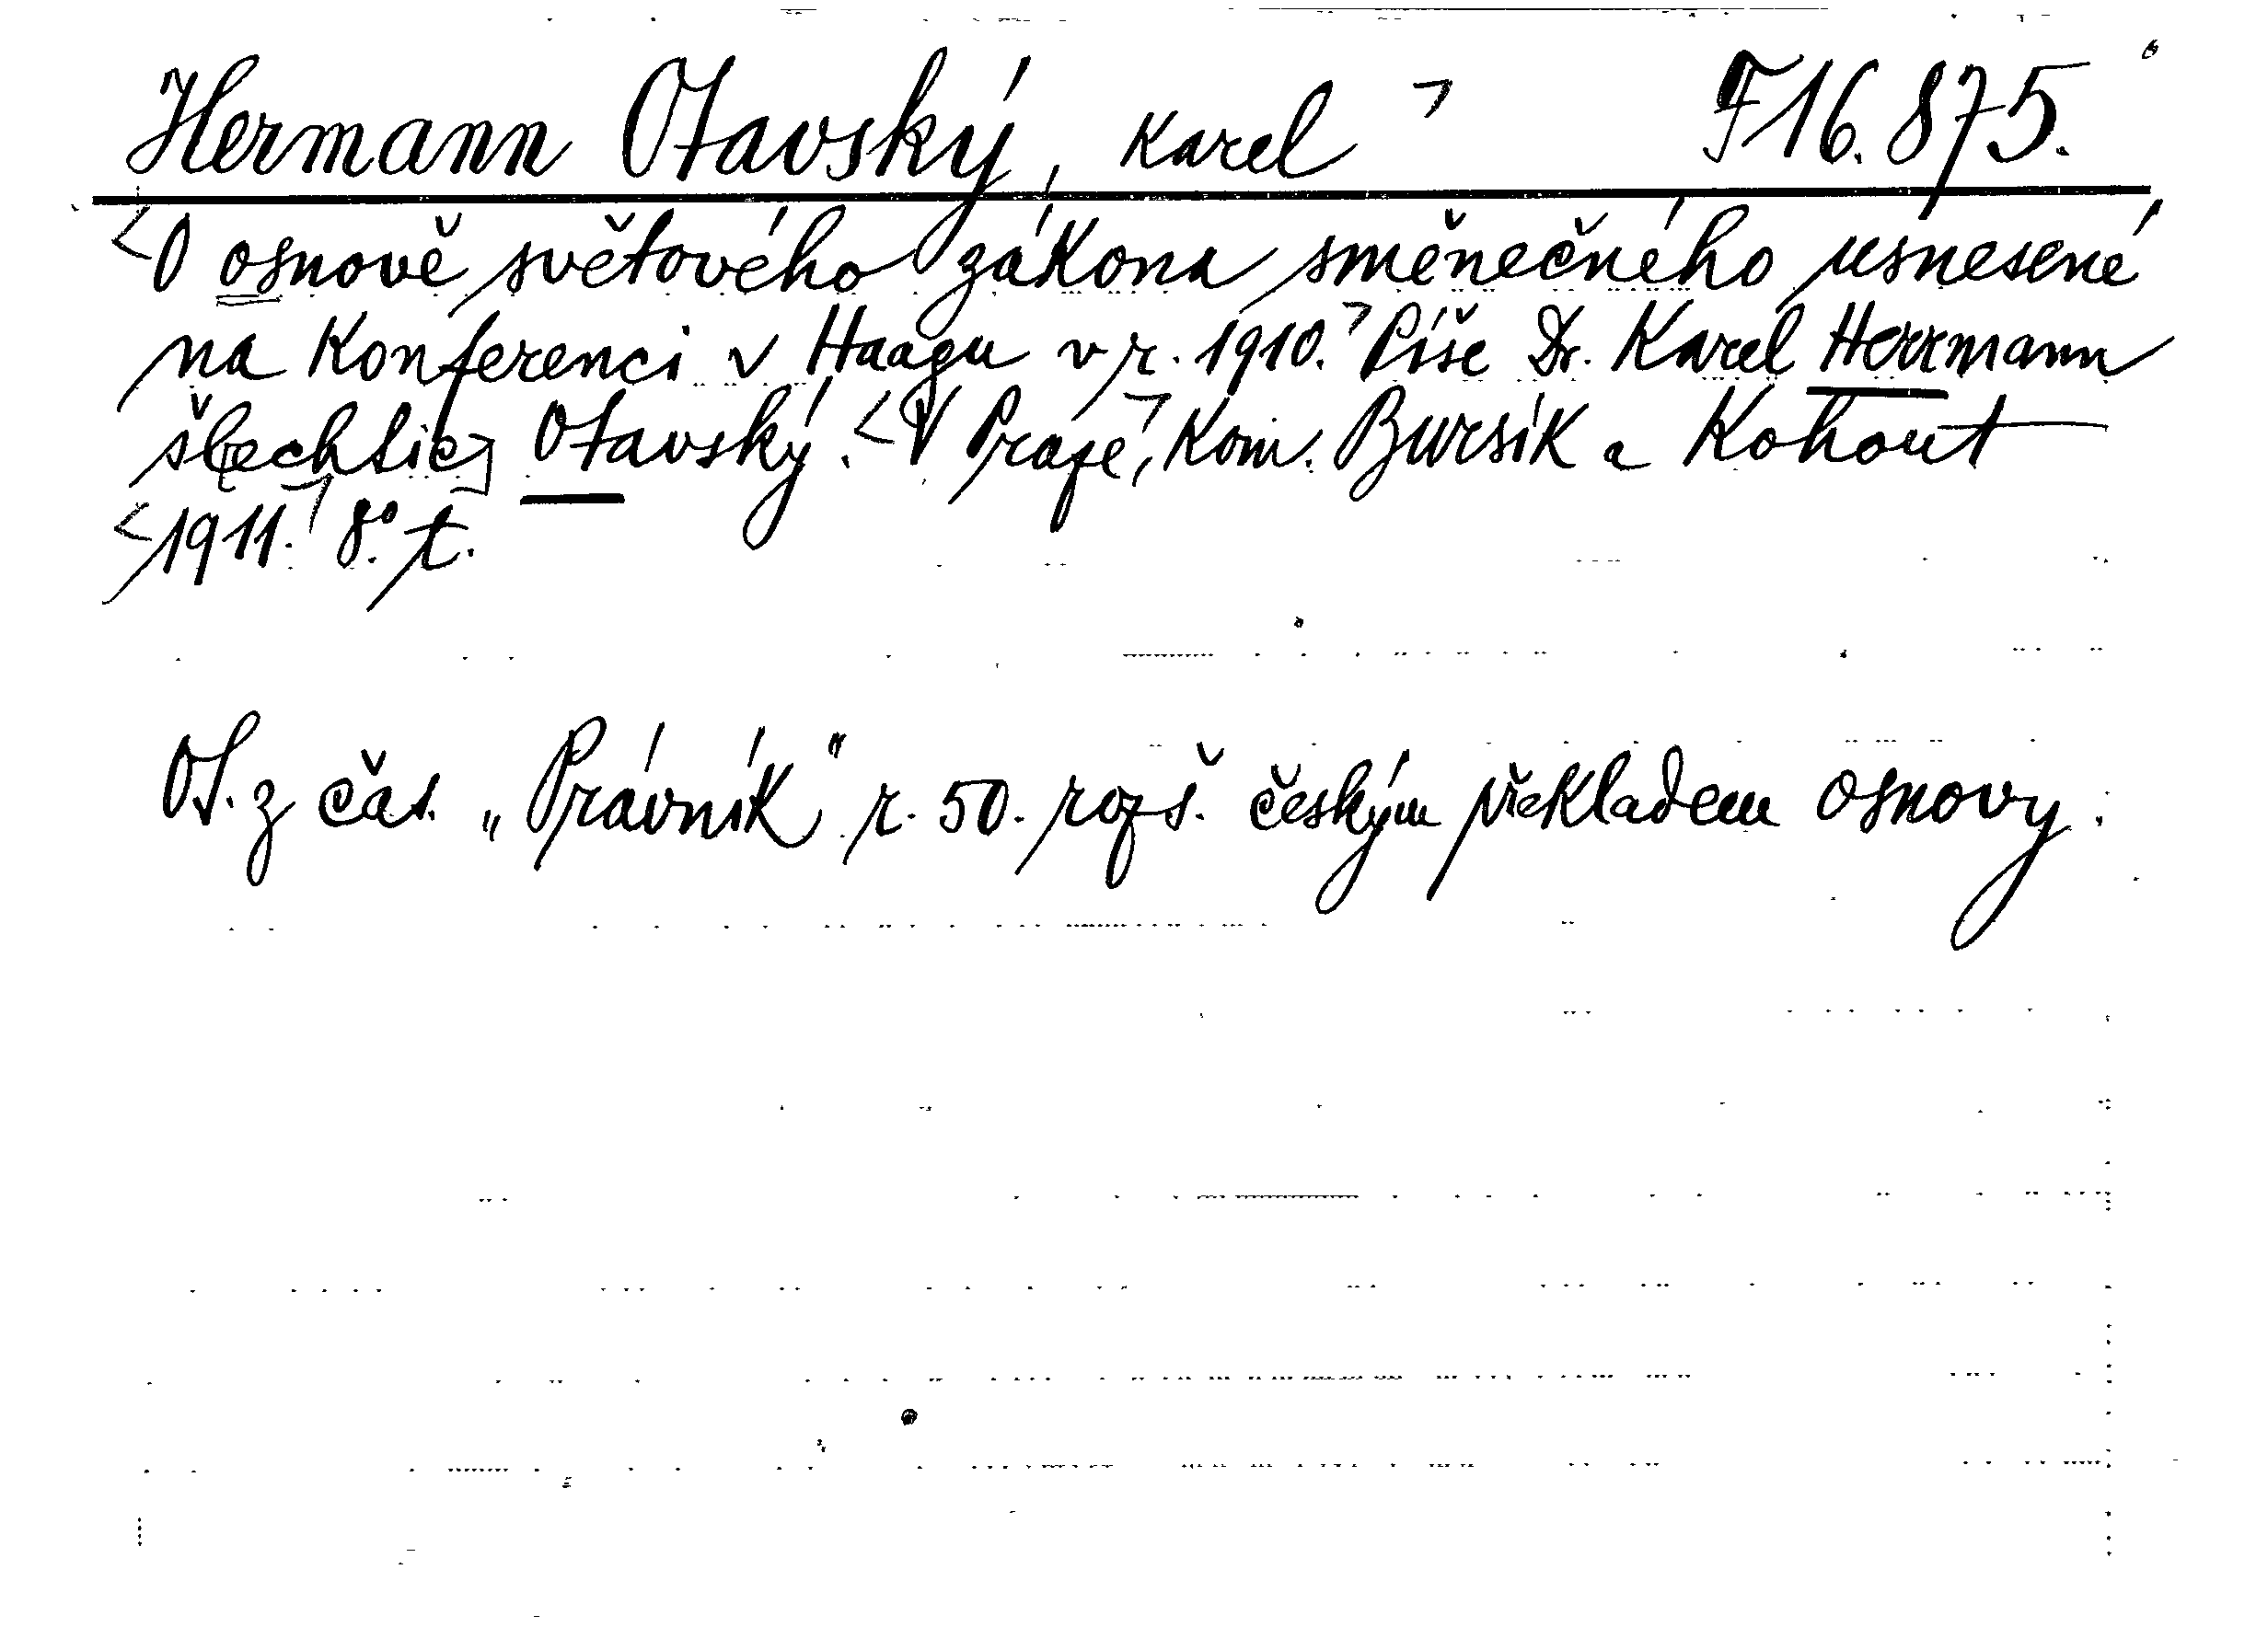 Hermann Otavský, Karel ⌝ F 16.875.
<O osnově světového zákona směnečného usnesené
na Konferenci v Haagu v r. 1910.⌝ Píše Dr. Karel Herrmann
šlechtic Otavský. <V Praze,⌝ Kom. Bursík a Kohout
<1911.⌝ 8.° t.
Ot. z čas. „Právník" r. 50. rozš. českým překladem osnovy.